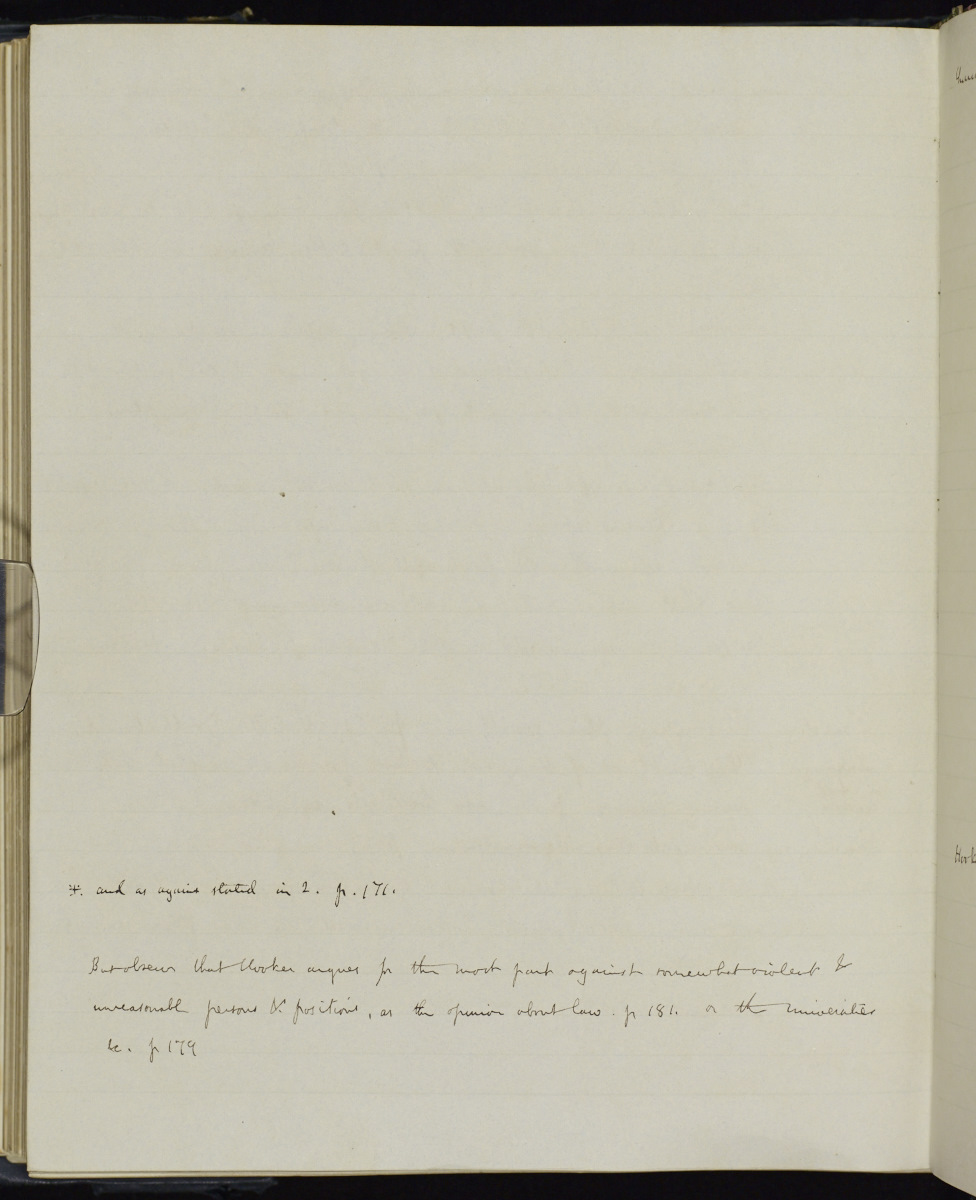 *. and as against stated in 2. p. 171.
But observe that Hooker argues for the most part against somewhat violent &
unreasonable persons & positions, as the opinion about law. p 181. or the universities
&c. p 179